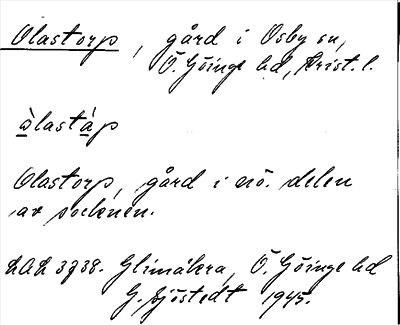 Olastorp, gård i Osby sn,
Ö. Göinge hd, Krist. l.
òlastàp
Olastorp, gård i nö. delen
av socknen.
LAL 3738. Glimåkra, Ö. Göinge hd
G. Sjöstedt 1945.